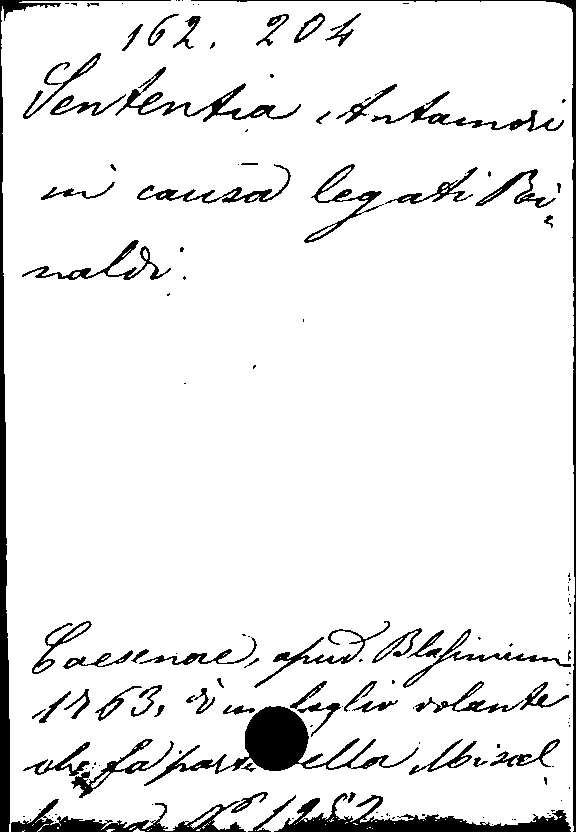 162. 204
Sententia Antamori
in causa legati Ri=
naldi.
Caesenae, apud. Blasinium
1763, È un foglio volante
che fa parte della Miscel
N° 1952